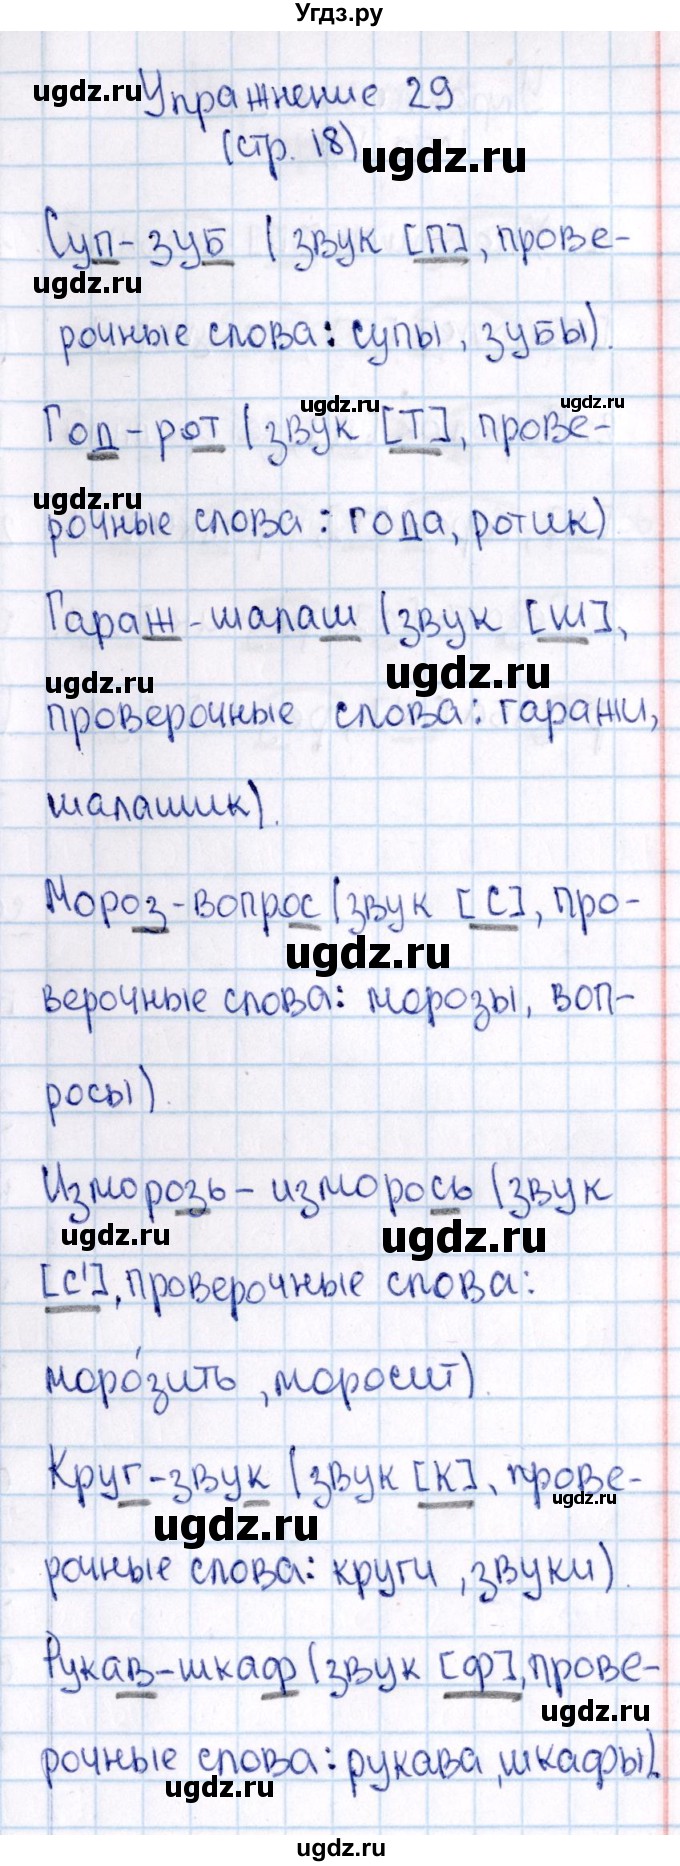 Угдз.ру
ugdz.ru Упражнение 29
(стр. 18) ugdz.ru
Суп - зуб (звук [п], прове-
ugdz.ru
рочные слова: супы, зубы).
ugdz.ru ugdz.ru
Год - рот (звук [т], прове-
ugdz.ru
рочные слова: года, ротик)
Гараж - шалаш (звук [ш],
ugdz.ru ugdz.ru
проверочные слова: гаражи,
шалашик).
Мороз - вопрос (звук [с], про-
ugdz.ru
верочные слова: морозы, воп-
росы).
Изморозь - изморось (звук
ugdz.ru ugdz.ru
[с'], проверочные слова:
моро́зить, моросит).
Круг - звук (звук [к], прове-
ugdz.ru ugdz.ru
рочные слова: круги, звуки).
Рукав - шкаф (звук [ф], прове-
ugdz.ru
рочные слова: рукава, шкафы).
ugdz.ru
ugdz.ru